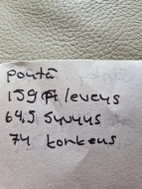 pöytä
159 leveys
64,5 syvyys
74 korkeus